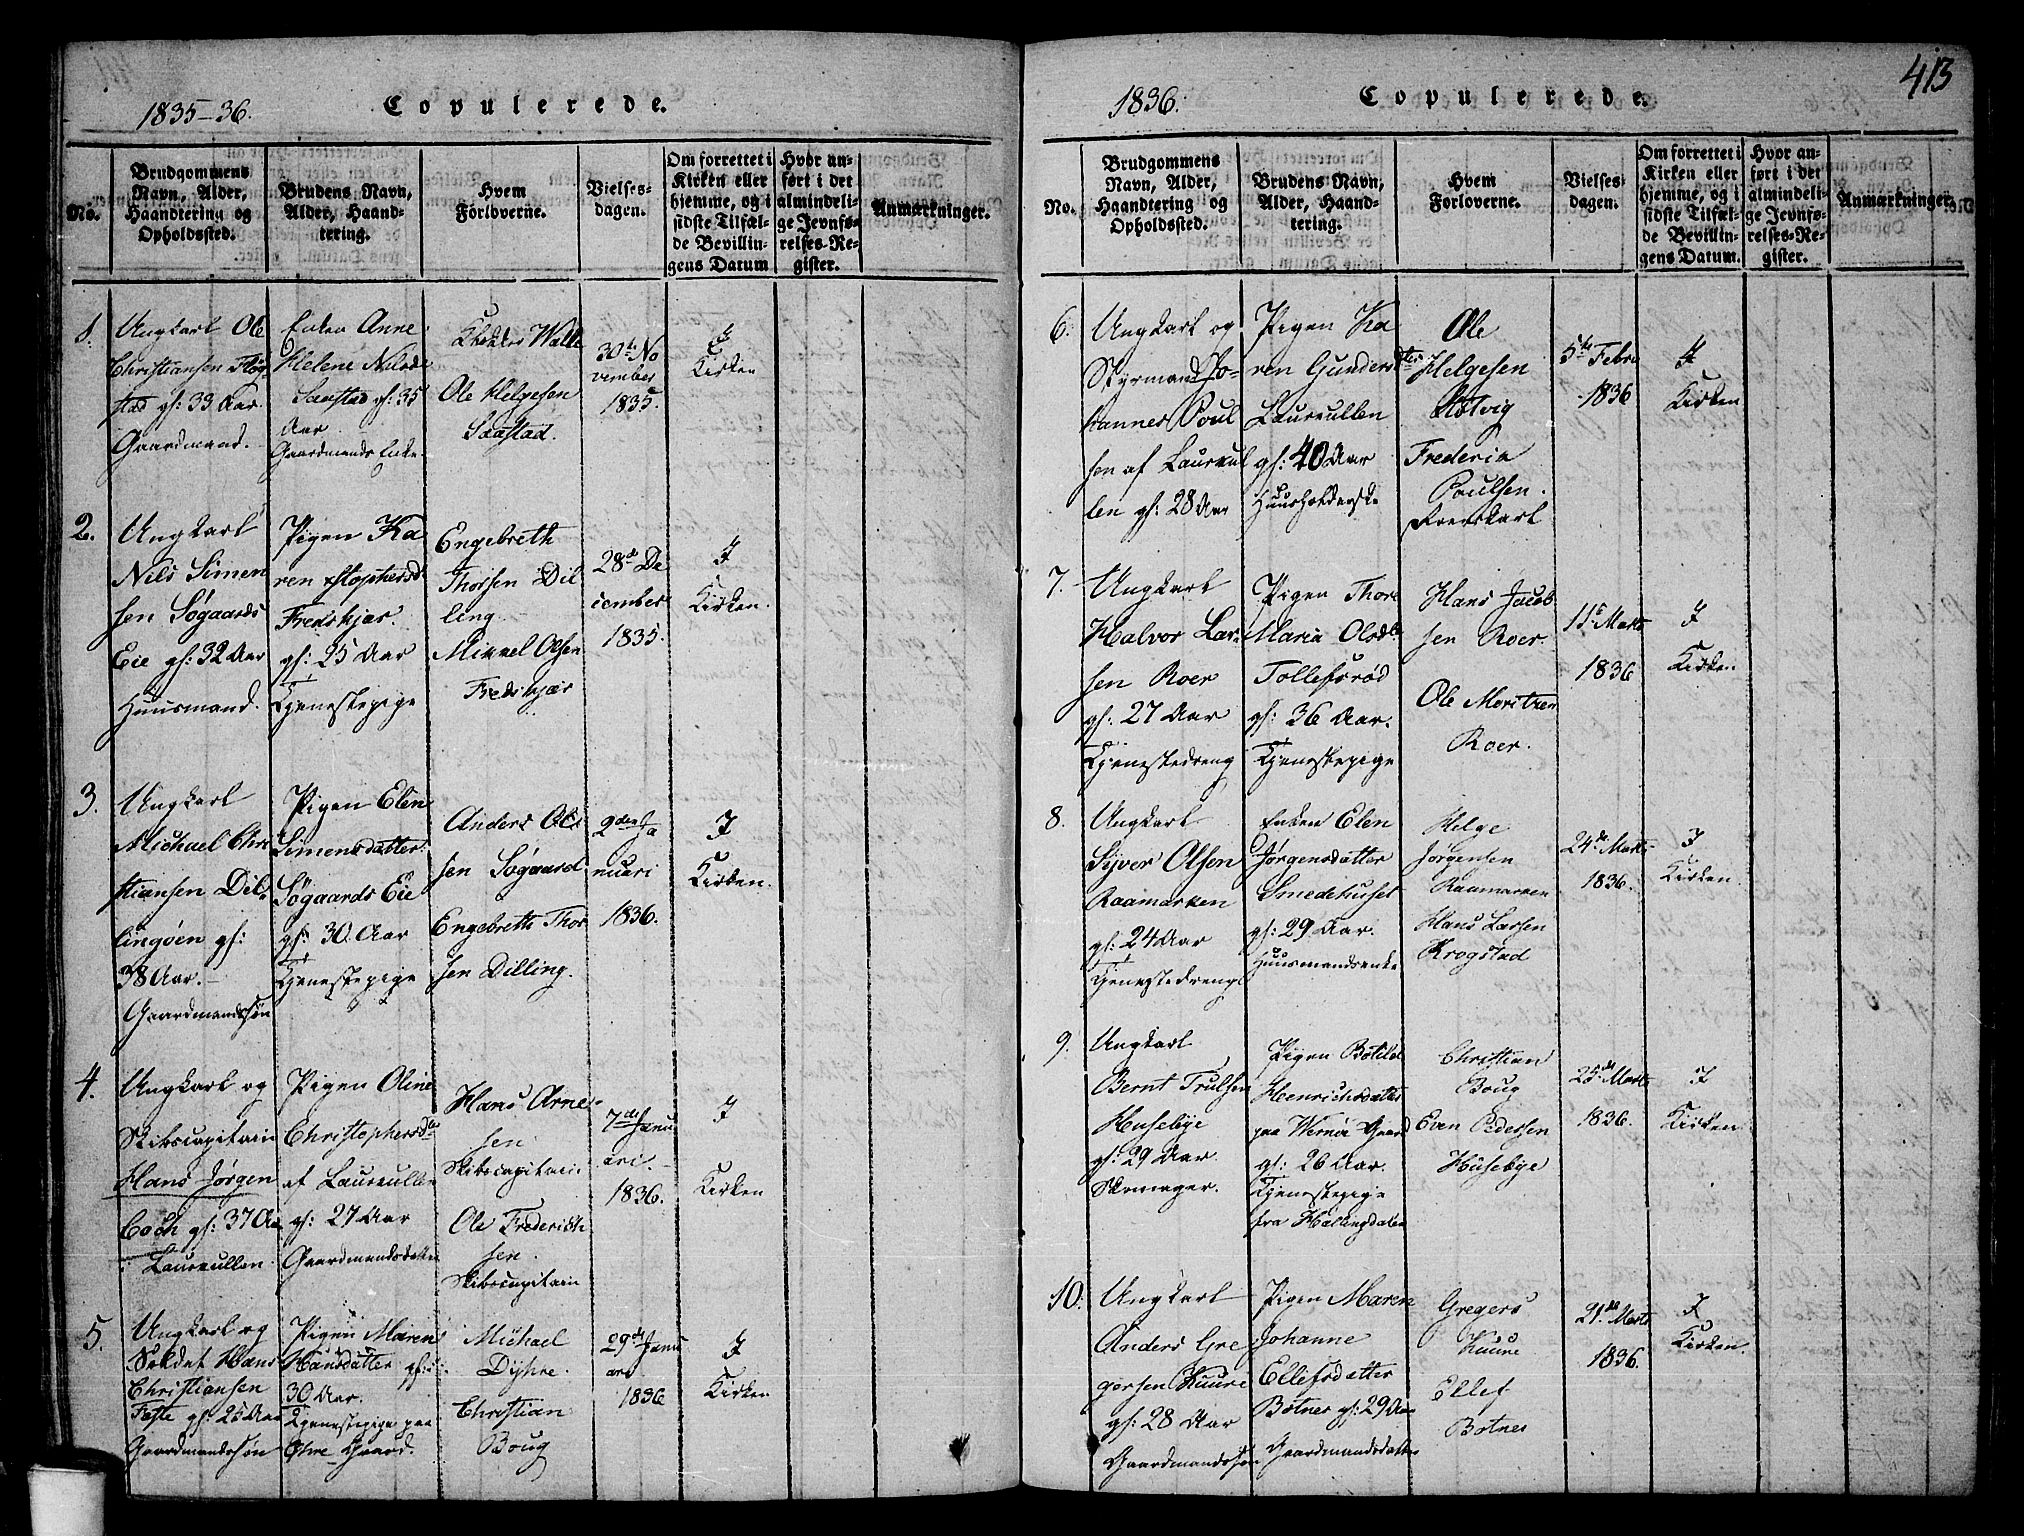 1835-36.
Copulerede.
No.
Brudgommens
Navn, Alder,
Haandtering og
Opholdssted.
Brudens Navn,
Alder, Haand-
tering.
Hvem
Forloverne.
Vielses-
dagen.
Om forrettet i
Kirken eller
hjemme, og i
sidste Tilfæl-
de Bevillin-
gens Datum
Hvor an-
ført i det
almindeli-
ge Jevnfø-
relses-Re-
gister.
Anmærkninger.
1.
Ungkarl Ole
Christiansen
stad gf: 33 Aar.
Gaardmand.
Enken Anne
Helene Nilsd
Saastad gf: 35
Aar
Gaardmands Enke.
Ole Helgesen
Saastad.
30te No
vember
1835.
I
Kirken
2.
Ungkarl
Nils Simen
sen Søgaards
Eie gf: 32 Aar
Huusmand.
Pigen Ka
ren Xstophersd
Fredskjær.
gf: 25 Aar
Tjenestepige
Engebreth
Thorsen Dil
ling.
Mikkel Olsen
Fredskjær
28de De
cember
1835.
I
Kirken.
3.
Ungkarl
Michael Chri
stiansen Dil-
lingøen gf:
38 Aar.
Gaardmandssøn
Pigen Elen
Simensdatter
Søgaards Eie
gf: 30 Aar
Tjenestepige
Anders Ol
sen Søgaard
Engebreth Thor
sen Dilling.
2den Ja
nuari
1836.
I
Kirken.
4.
Ungkarl og
Skibscapitain
Hans Jørgen
Coch gf: 37 Aar
Laurkullen
Pigen Oline
Christophersdtr
af Laurkullen
gf: 27 Aar
Gaardmandsdatter
Hans Arne-
sen
Skibscapitain
Ole Frederich
sen.
Skibscapitain
7de Janu
ari.
1836.
I
Kirken
5.
Ungkarl og
Soldat Hans
Christiansen
Feste gf: 25 Aar
Gaardmandssøn
Pigen Maren
Hansdatter gf:
30 Aar.
Tjenestepige paa
Øhre Gaard.
Michael
Dyhre.
Christian
Boug
29de Janu
ari
1836
I
Kirken
1836.
Copulerede.
413
No.
Brudgommens
Navn, Alder,
Haandtering og
Opholdssted.
Brudens Navn,
Alder, Haand-
tering.
Hvem
Forloverne.
Vielses-
dagen.
Om forrettet i
Kirken eller
hjemme, og i
sidste Tilfæl-
de Bevillin-
gens Datum.
Hvor an-
ført i det
almindeli-
ge Jevnfø-
relses-Re-
gister.
Anmærkninger.
6.
Ungkarl og
Styrmand Jo-
hannes Poul
sen af Laurkul
len gf: 28 Aar
Pigen Ka
ren Gundersdtter
Laurkullen
gf: 40 Aar
Huusholderske
Ole
Helgesen
Frederik
Poulsen.
5te Febru
1836
I
Kirken
7.
Ungkarl
Halvor Lar-
sen Roer
gf: 27 Aar
Tjenestedreng
Pigen Thore
Maria Olsdtr
Tollefsrød
gf: 36 Aar.
Tjenestepige
Hans Jacob
sen Roer.
Ole Moritzen
Roer.
11te Marts
1836
I
Kirken
8.
Ungkarl
Syver Olsen
Raamarken
gf: 24 Aar
Tjenestedreng
Enken Elen
Jørgensdatter
Smedehuset
gf: 29 Aar.
Huusmandsenke
Helge
Jørgensen
Raamarken
Hans Larsen
Krogstad
24de Marts
1836.
I
Kirken.
9.
Ungkarl
Bernt Trulsen
Husebye
gf: 29 Aar.
Skomager.
Pigen Botild
Henrichsdatter
paa Wernøe Gaard
gf: 26 Aar.
Tjenestepige
fra Hallingdalen
Christian
Boug
Even Pedersen
Husebye
25de Marts
1836.
I
Kirken
10.
Ungkarl
Anders Gre
gersen Kuure
gf: 28 Aar
Gaardmandssøn
Pigen Maren
Johanne
Ellefsdatter
Botner gf: 29 Aar
Gaardmandsdatter
Gregers
Kuure
Ellef
Botner
21de Marts
1836.
I
Kirken.